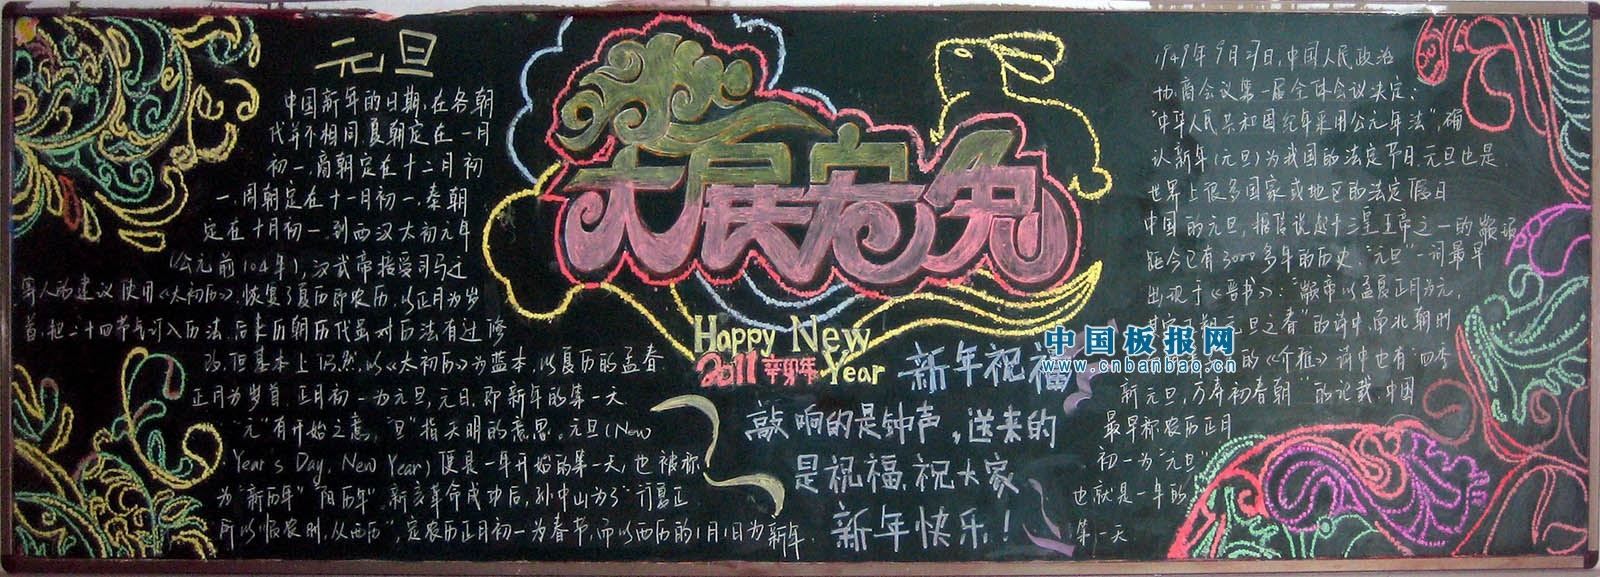 元旦
中国新年的日期,在各朝
代并不相同.夏朝定在一月
初一,商朝定在十二月初
一,周朝定在十一月初一,秦朝
定在十月初一,到西汉太初元年
(公元前104年),汉武帝接受司马迁
等人的建议使用《太初历》,恢复了夏历即农历,以正月为岁
首,把二十四节气订入历法,后来历朝历代虽对历法有过修
改,但基本上仍然以《太初历》为蓝本,以夏历的孟春
正月为岁首,正月初一为元旦,元日,即新年的第一天.
"元"有开始之意,"旦"指天明的意思。元旦(New
Year's Day, New Year)便是一年开始的第一天,也被称
为"新历年""阳历年".新亥革命成功后,孙中山为了"行夏正
所以顺农时,从西历",定农历正月初一为春节,而以西历的1月1日为新年.
大展宏兔
Happy New
2011辛卯年 Year
新年祝福
敲响的是钟声,送来的
是祝福,祝大家
新年快乐!
1949年9月27日,中国人民政治
协商会议第一届全体会议决定:
"中华人民共和国纪年采用公元年法",确
认新年(元旦)为我国的法定节日.元旦也是
世界上很多国家或地区的法定假日
中国的元旦,据传说起于三皇五帝之一的
距今已有3000多年的历史."元旦"一词最早
出现于《晋书》:"以孟夏正月为元,
元旦之春"的诗中.南北朝时
的《介雅》诗中也有"四季
新元旦,万寿初春朝"的记载.中国
最早称农历正月
初一为"元旦"
也就是一年的
第一天
中国板报网
www.cnbanbao.cn